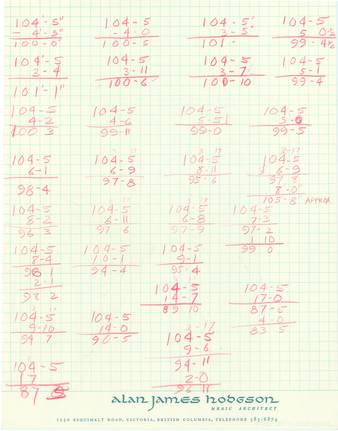 104'-5" 104-5 104-5' 104-5
- 4-5" -4-0 3-5" 5
100-0" 100-5 101- 99-4½
104'-5 104-5 104-5 104-5
3-4 3-11 3-7 5-1
101'-1" 100-6 100-10 99-4
104-5 104-5 104-5 104-5
4-2 4-6 5-5
100 3 99-11 99-0 99-5
104-5 104-5 104-5 104-5
6-1 6-9 8-11 6-9
98-4 97-8 95-6 97-8
8-0
105-8 APPROX
104-5 104-5 104-5 104-5
8-2 6-11 6-8 7-3
96 3 97 6 97-9 97-2
1 10
99 0
104-5 104-5 104-5
8-4 10-1 9-1
2-1 94-4 95-4
104-5 104-5
14-7 17-0
89 10 87-5
4-0
83 5
104-5 104-5 104-5
9-10 14-0 9-6
94 7 90-5 94-11
2-0
96 11
104-5
17
87
alan james hodgson
MRAIC ARCHITECT
1220 ESQUIMALT ROAD, VICTORIA, BRITISH COLUMBIA, TELEPHONE 383-8874